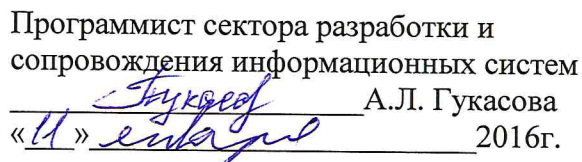 Программист сектора разработки и
сопровождения информационных систем
Гукасов А.Л. Гукасова
«11» января 2016г.